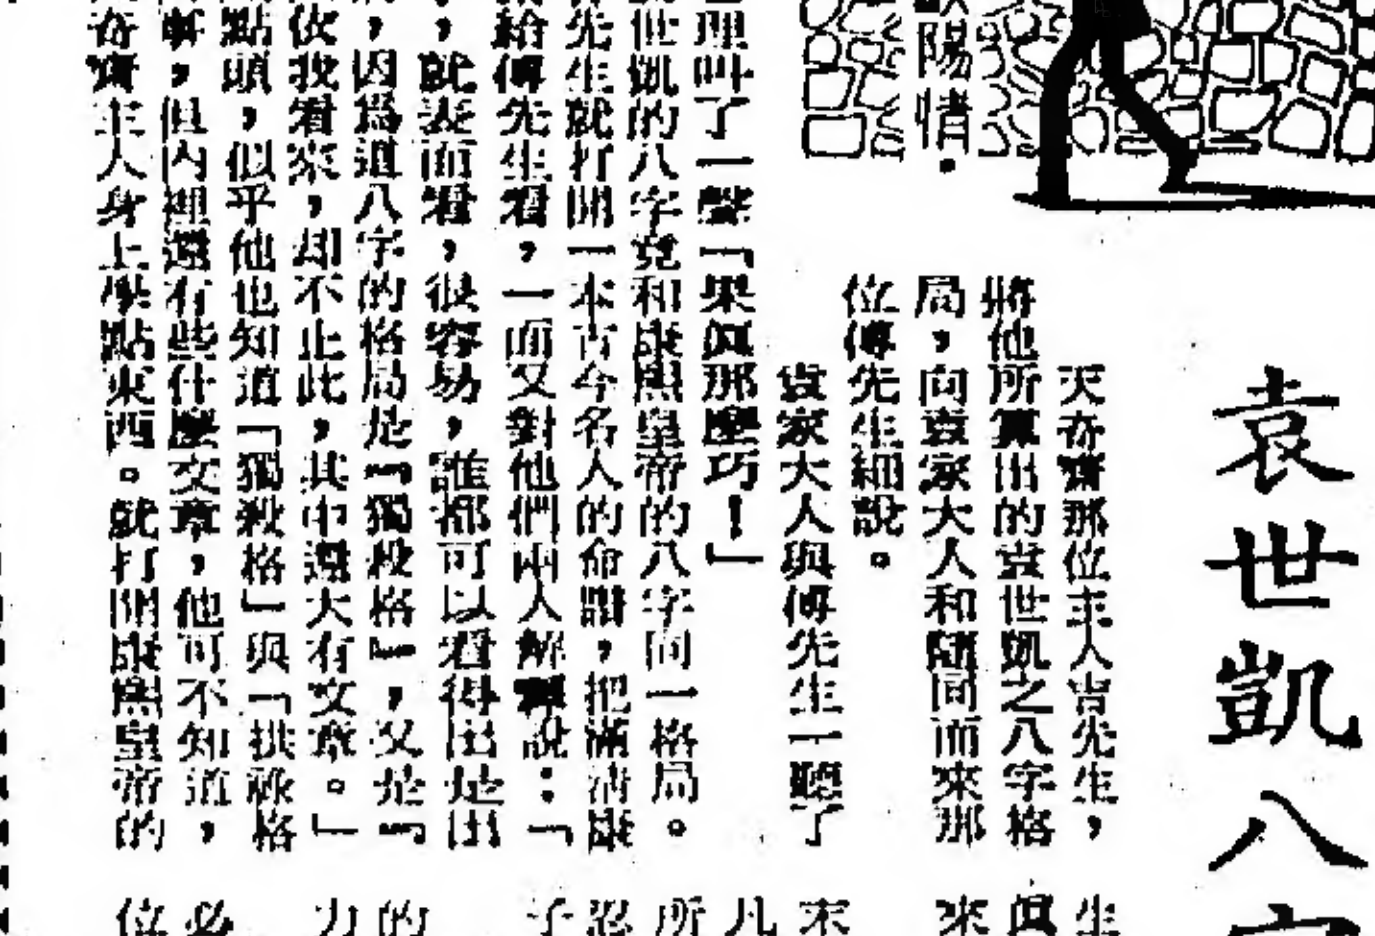 袁世凱八字
歐陽情・
天奇齋那位主人吉先生，
將他所算出的袁世凱之八字格
局，向袁家大人和隨同而來那
位傅先生細說。
袁家大人與傅先生一聽了
理叫了一聲「果眞那麼巧！」
世凱的八字竟和康熙皇帝的八字同一格局。
先生就打開一本古今名人的命譜，把滿清康
給傅先生看，一面又對他們兩人解釋說：「
，就表面看，很容易，誰都可以看得出是出
，因爲這八字的格局是「獨殺格」，又是「
依我看來，却不止此，其中還大有文章。」
點頭，似乎他也知道「獨殺格」與「拱祿格
事，但內裡還有些什麼文章，他可不知道，
奇齋主人身上學點東西。就打開康熙皇帝的
生
眞
來
末
凡
所
忍
子
的
力
必
位